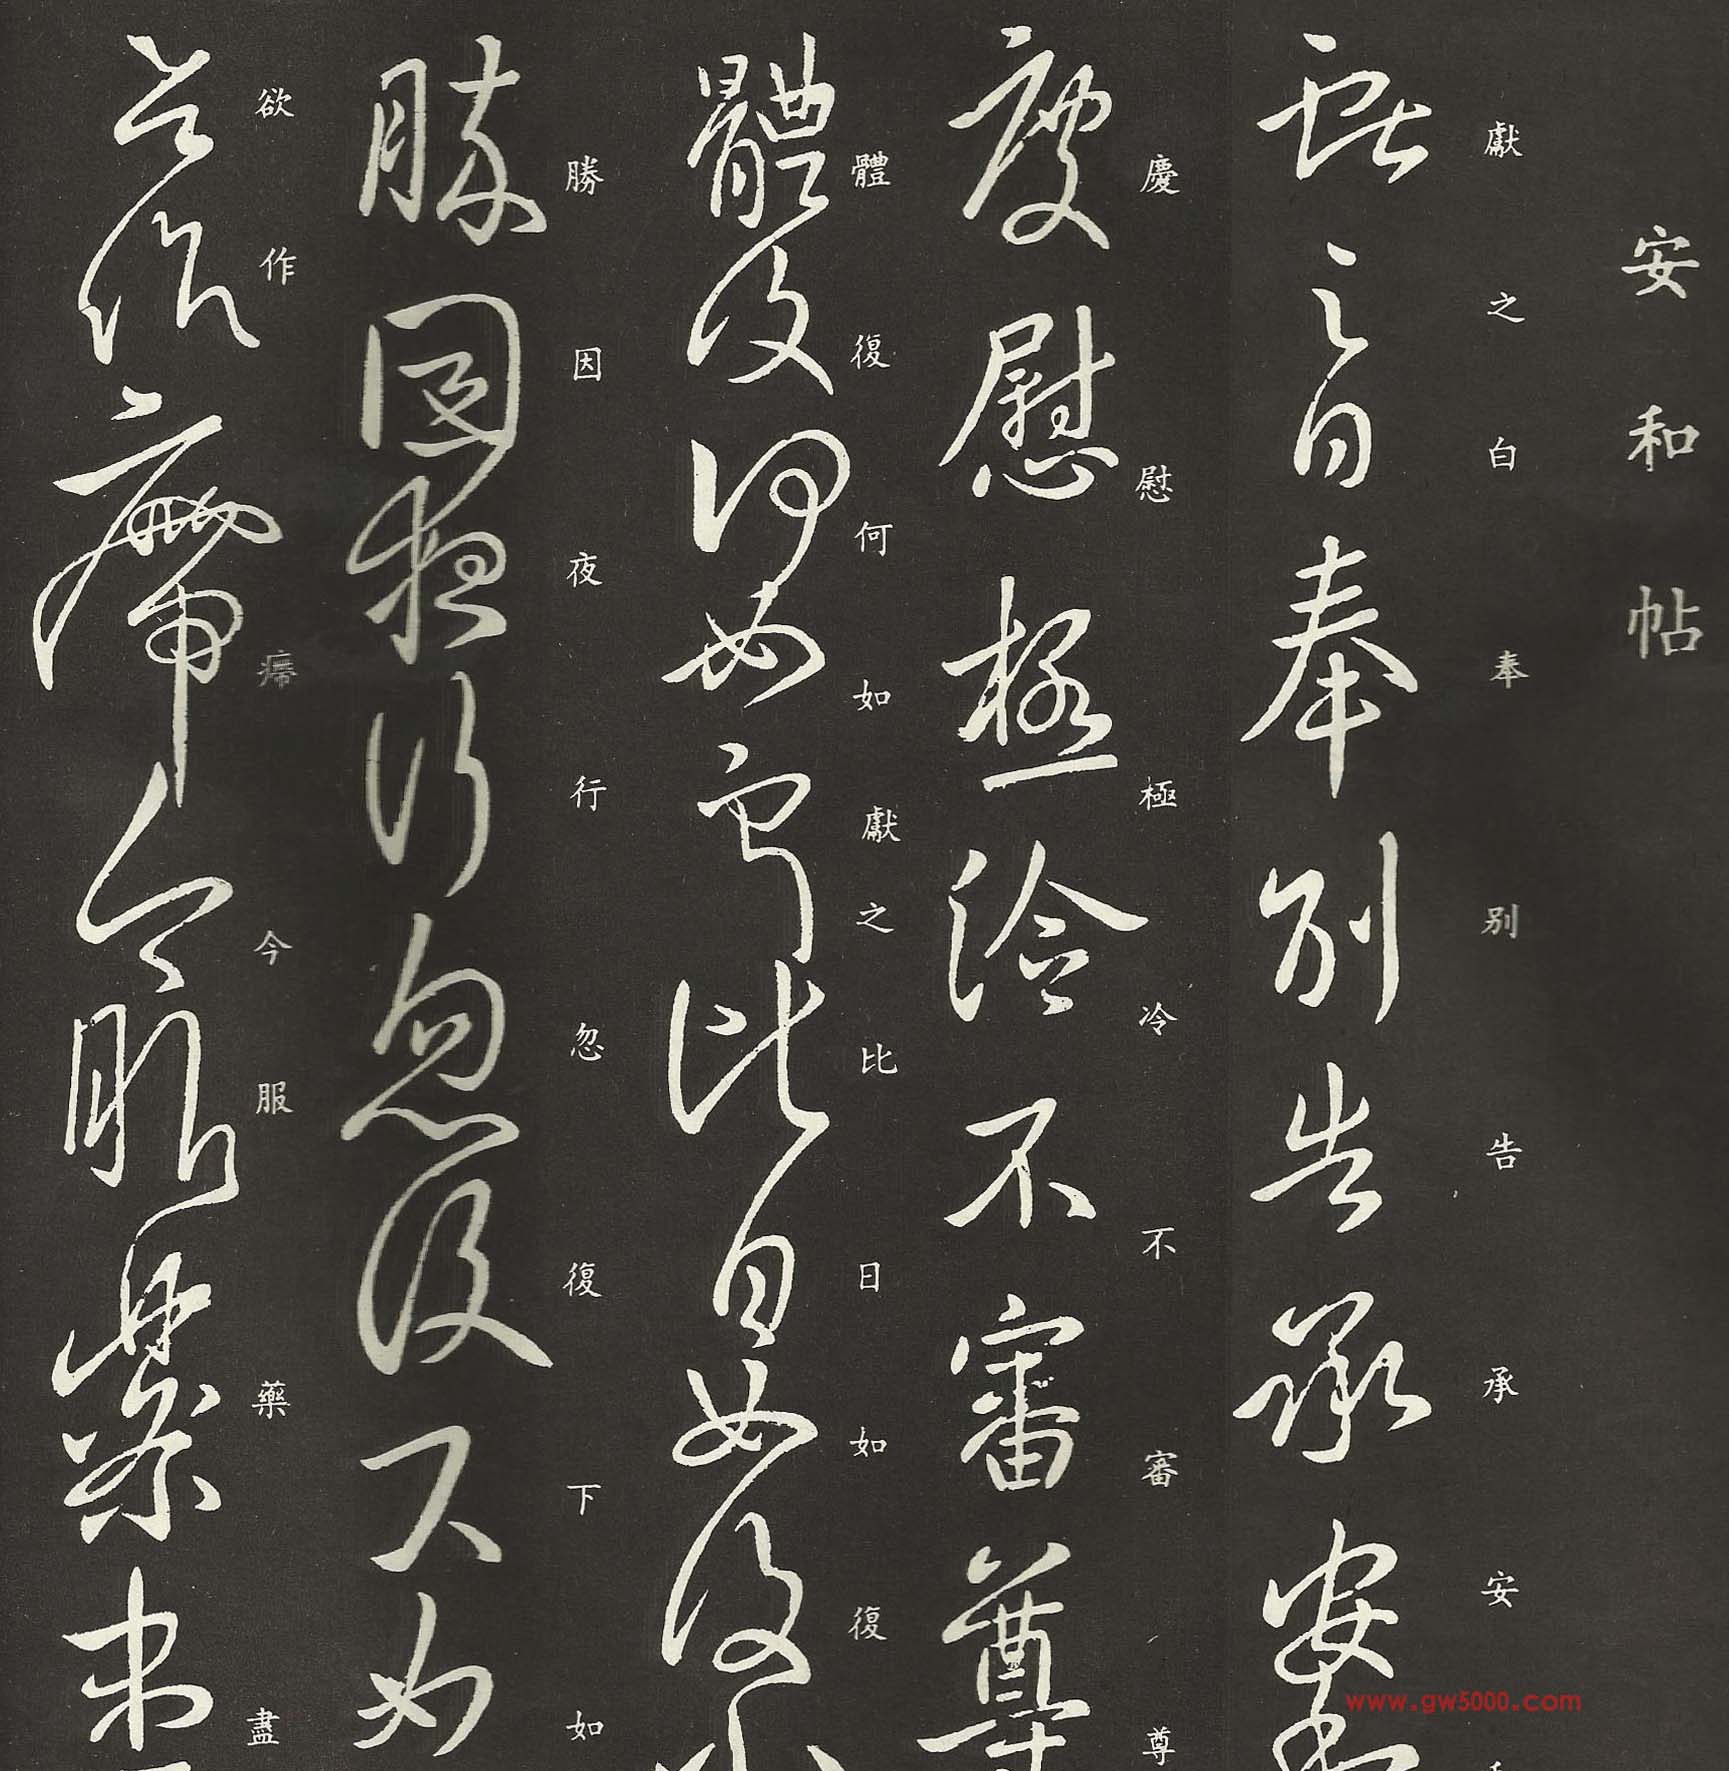 安和帖
獻之白奉別告承安
慶慰極冷不審尊
體復何如獻之比日如復
勝因夜行忽復下如
欲作㾿今服藥盡
www.gw5000.com